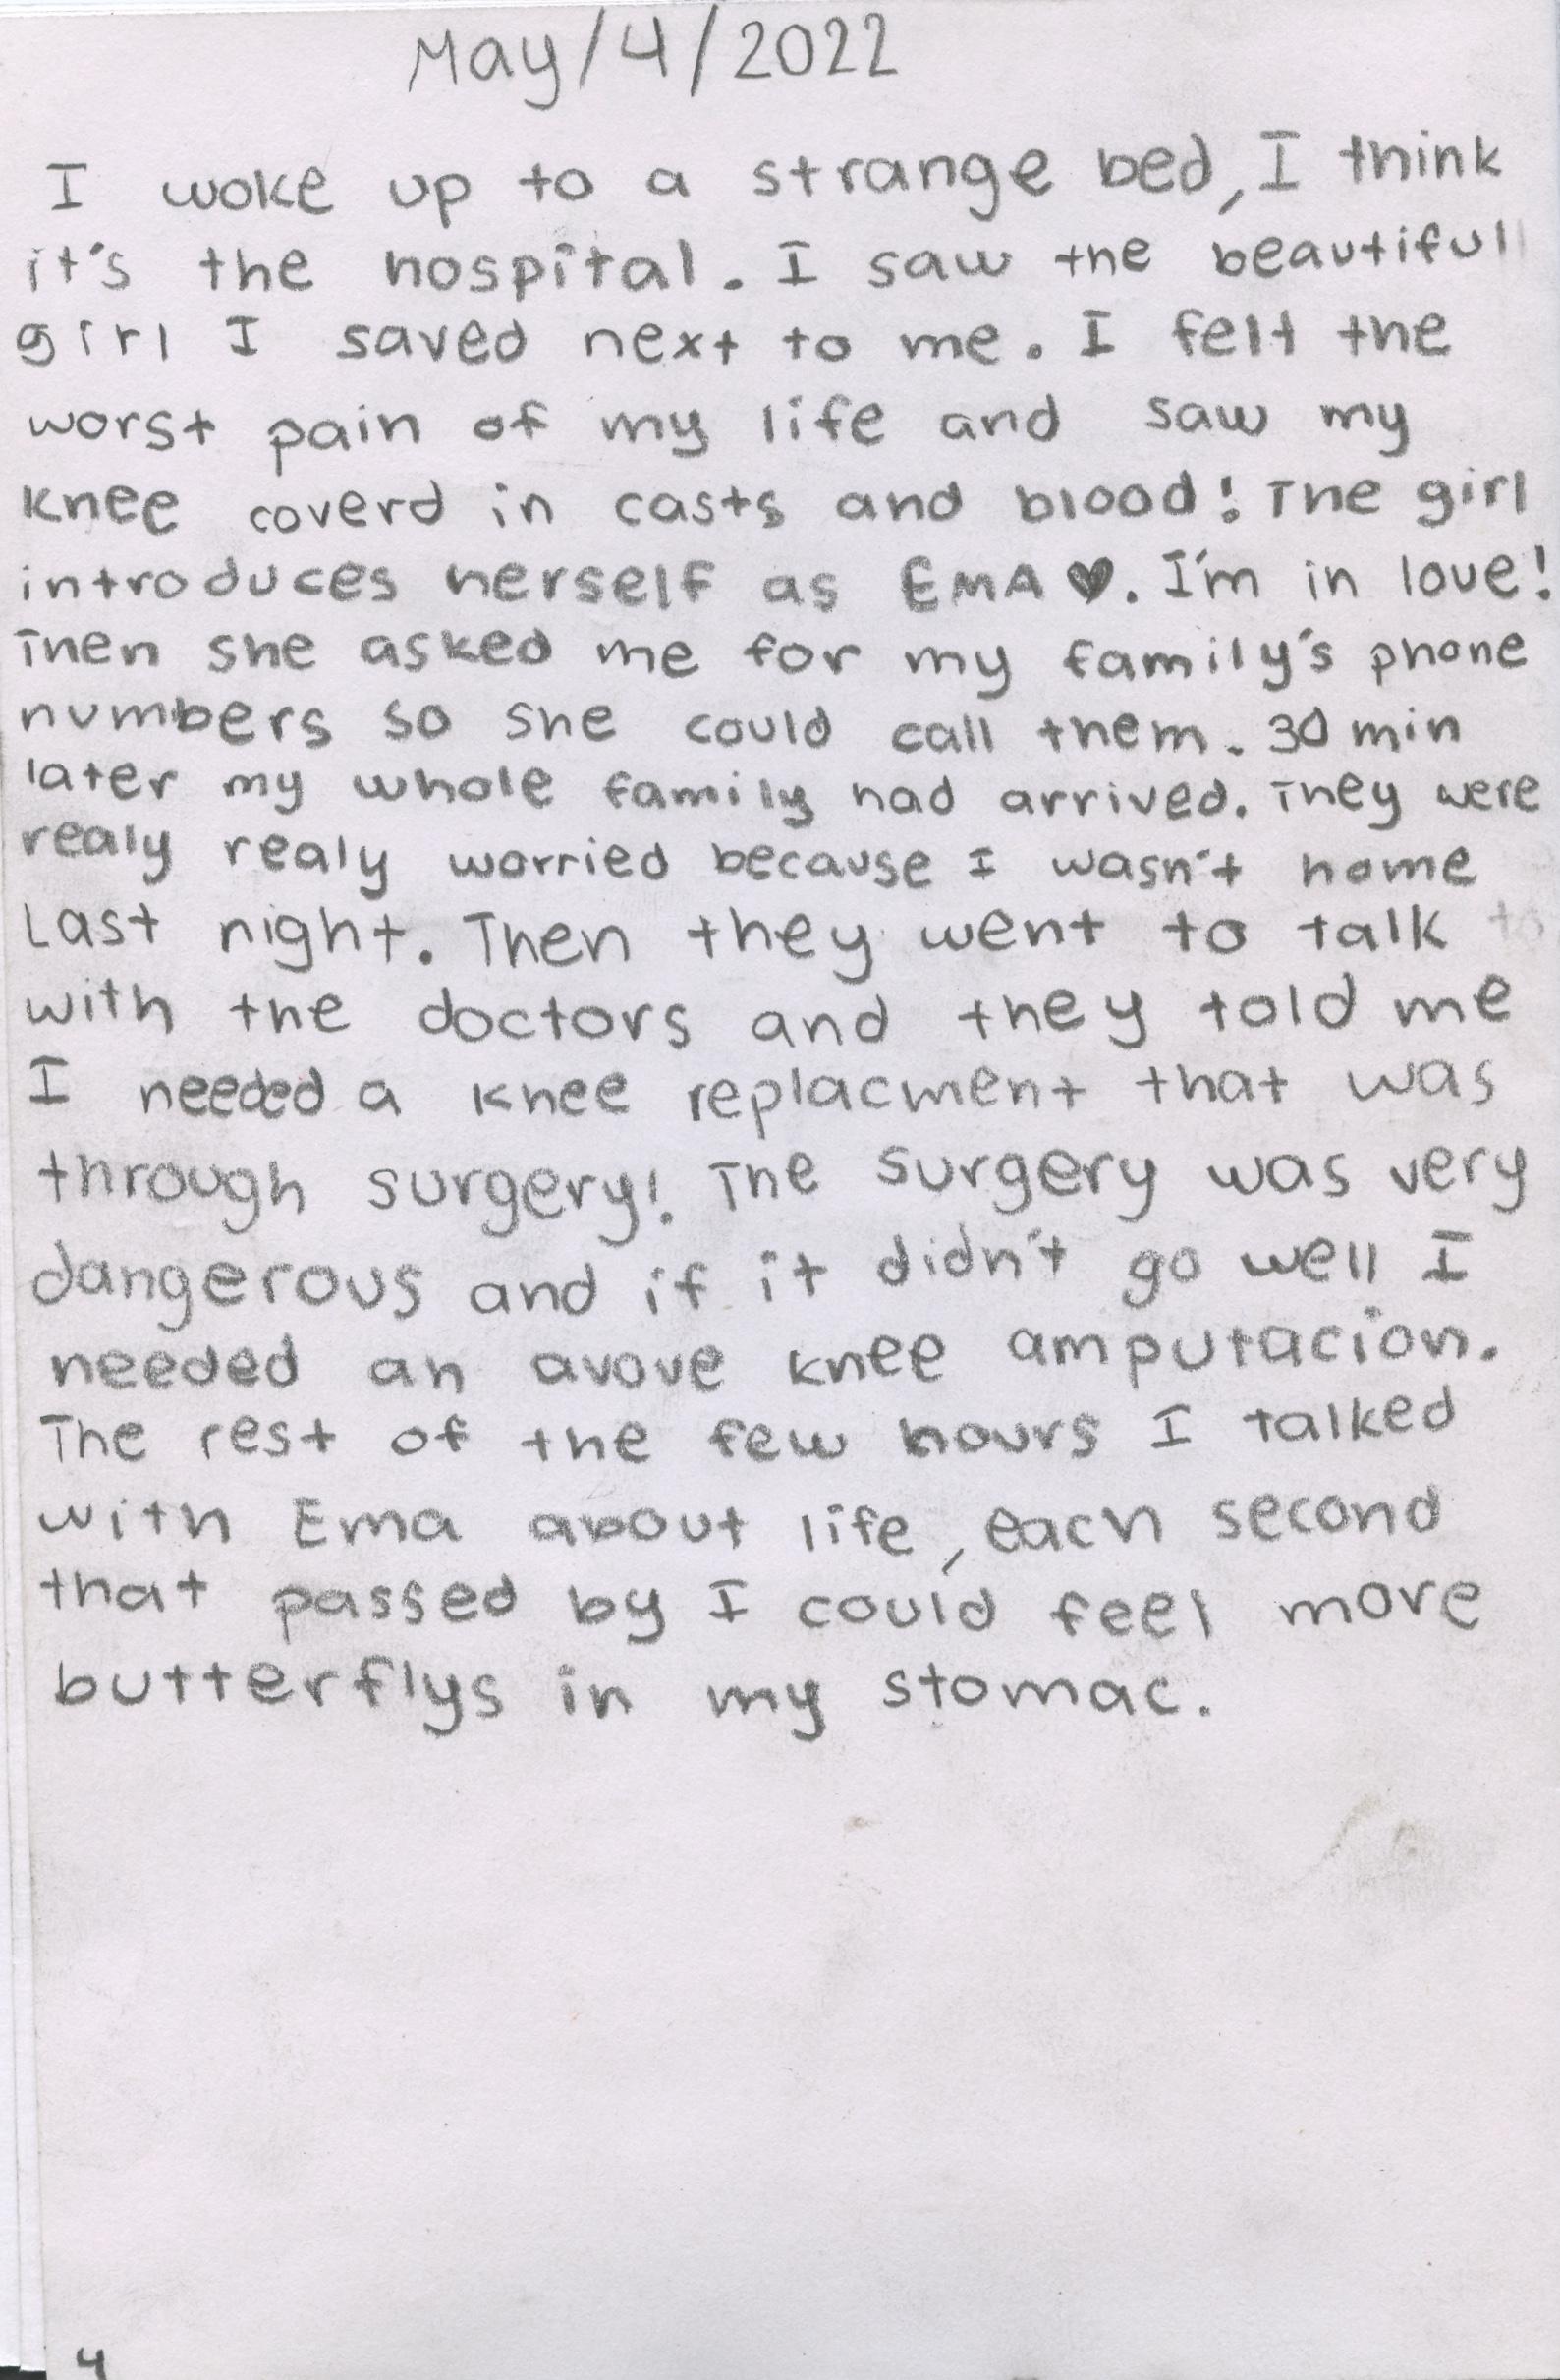 May/4/2022
I woke up to a strange bed, I think
it's the hospital. I saw the beautifull
girl I saved next to me. I felt the
worst pain of my life and saw my
knee coverd in casts and blood! The girl
introduces herself as EMA ♥. I'm in love!
Then she asked me for my family's phone
numbers so she could call them. 30 min
later my whole family had arrived. They were
realy realy worried because I wasn't home
Last night. Then they went to talk to
with the doctors and they told me
I needed a knee replacment that was
through surgery! The surgery was very
dangerous and if it didn't go well I
needed an avove knee amputacion.
The rest of the few hours I talked
with Ema about life, each second
that passed by I could feel more
butterflys in my stomac.
4